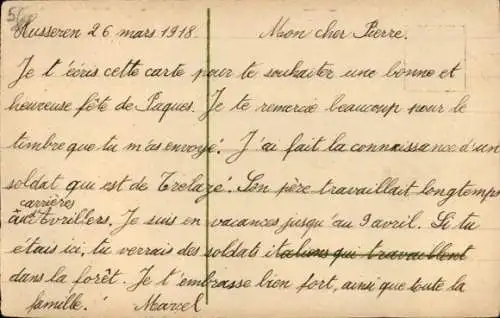 Husseren 26 mars 1918. Mon cher Pierre.
Je t'écris cette carte pour te souhaiter une bonne et
heureuse fête de Pâques. Je te remercie beaucoup pour le
timbre que tu m'as envoyé. J'ai fait la connaissance d'un
soldat qui est de Trélazé. Son père travaillait longtemps
carrières
aux d'Avrillers. Je suis en vacances jusqu'au 9 avril. Si tu
étais ici, tu verrais des soldats italiens qui travaillent
dans la forêt. Je t'embrasse bien fort, ainsi que toute la
famille. Marcel